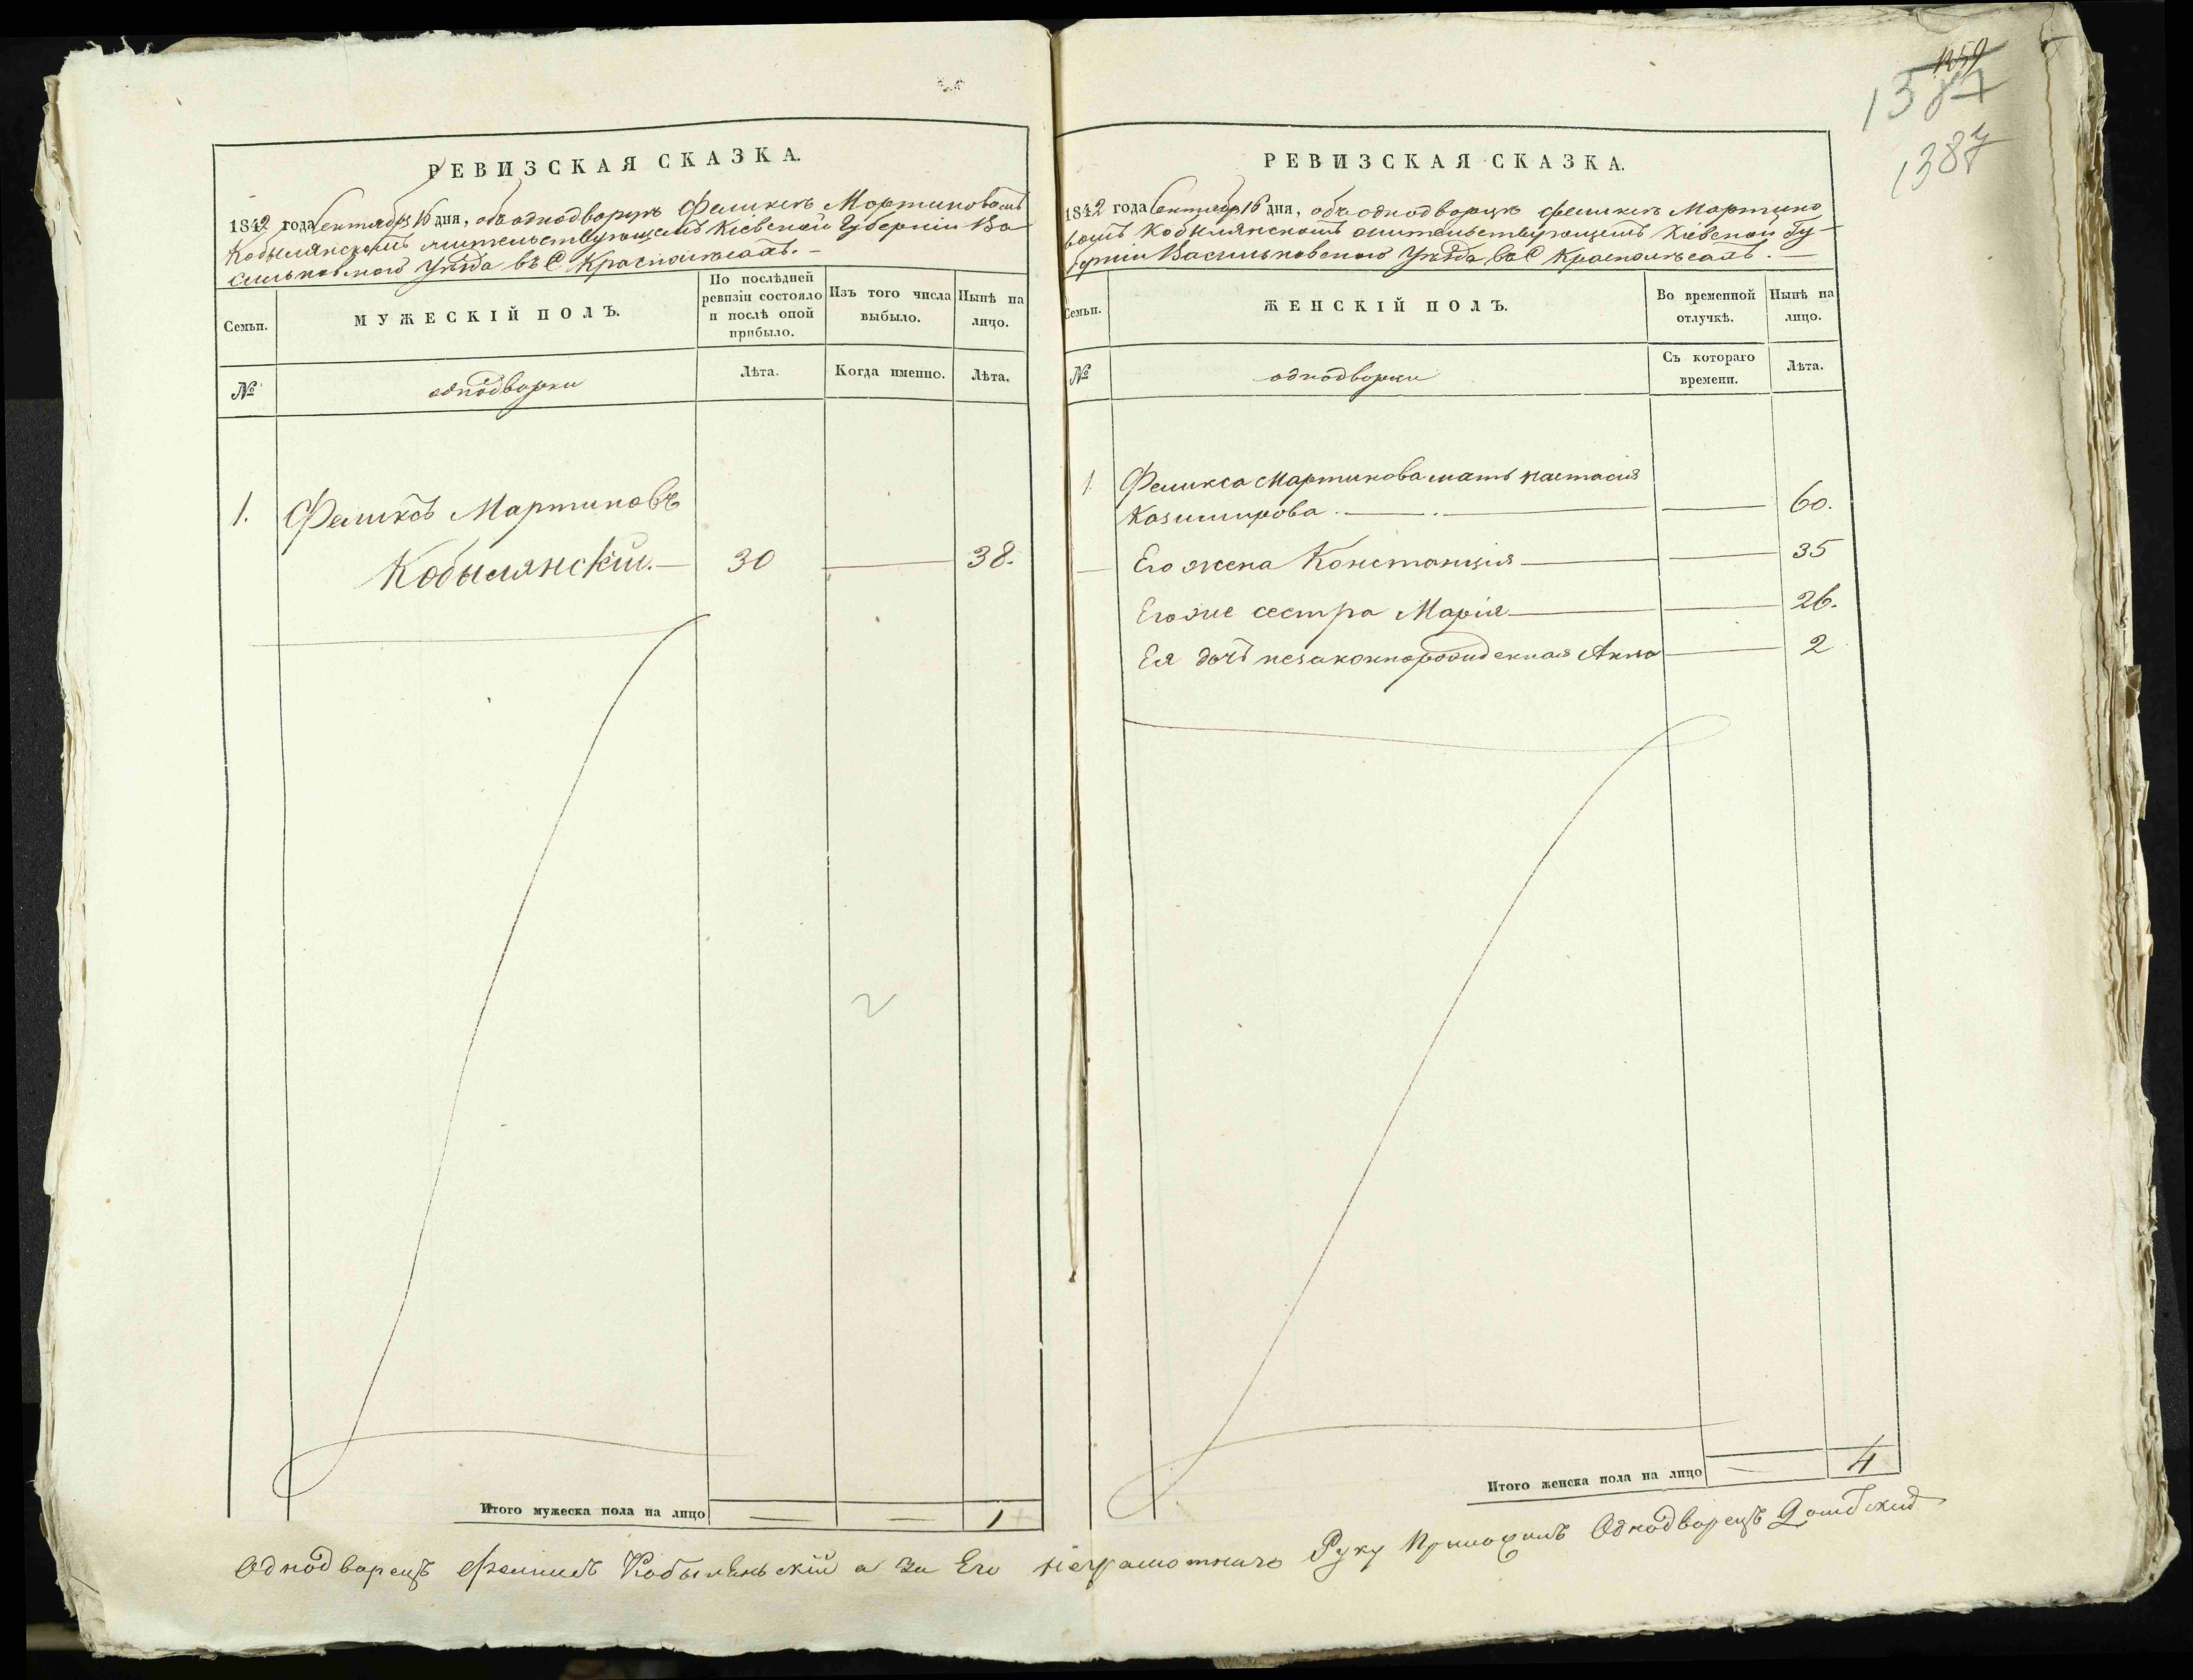 1259
1387
1387
РЕВИЗСКАЯ СКАЗКА.
1842 года Сентября 16 дня, объ однодворцѣ Феликсѣ Мартиновомъ
Кобылянскомъ жительствующемъ Кіевской Губерніи Ва-
сильковскаго Уѣзда въ С
Семьи.
МУЖЕСКІЙ ПОЛЪ.
По послѣдней
ревизіи состояло
и послѣ оной
прибыло.
Изъ того числа
выбыло.
Нынѣ на
лицо.
№
однодворки
Лѣта.
Когда именно.
Лѣта.
1. Феликсъ Мартиновъ
Кобылянскій.— 30 — 38.
2
Итого мужеска пола на лицо — — 1
РЕВИЗСКАЯ СКАЗКА.
1842 года Сентября 16 дня, объ однодворцѣ Феликсѣ Мартино
вомъ Кобылянскомъ жительствующемъ Кіевской Гу-
берніи Васильковскаго Уѣзда въ С
Семьи.
ЖЕНСКІЙ ПОЛЪ.
Во временной
отлучкѣ.
Нынѣ на
лицо.
№
однодворки
Съ котораго
времени.
Лѣта.
1. Феликса Мартинова мать Настасия
Казимирова — — 60.
— Его жена Констанція — — 35
Его же сестра Марія — — 26.
Ея дочь незаконнорожденная Анна — 2
Итого женска пола на лицо — 4
Однодворецъ Феликсъ Кобыляньскій а за Его неграмотнаго Руку Приложилъ Однодворецъ